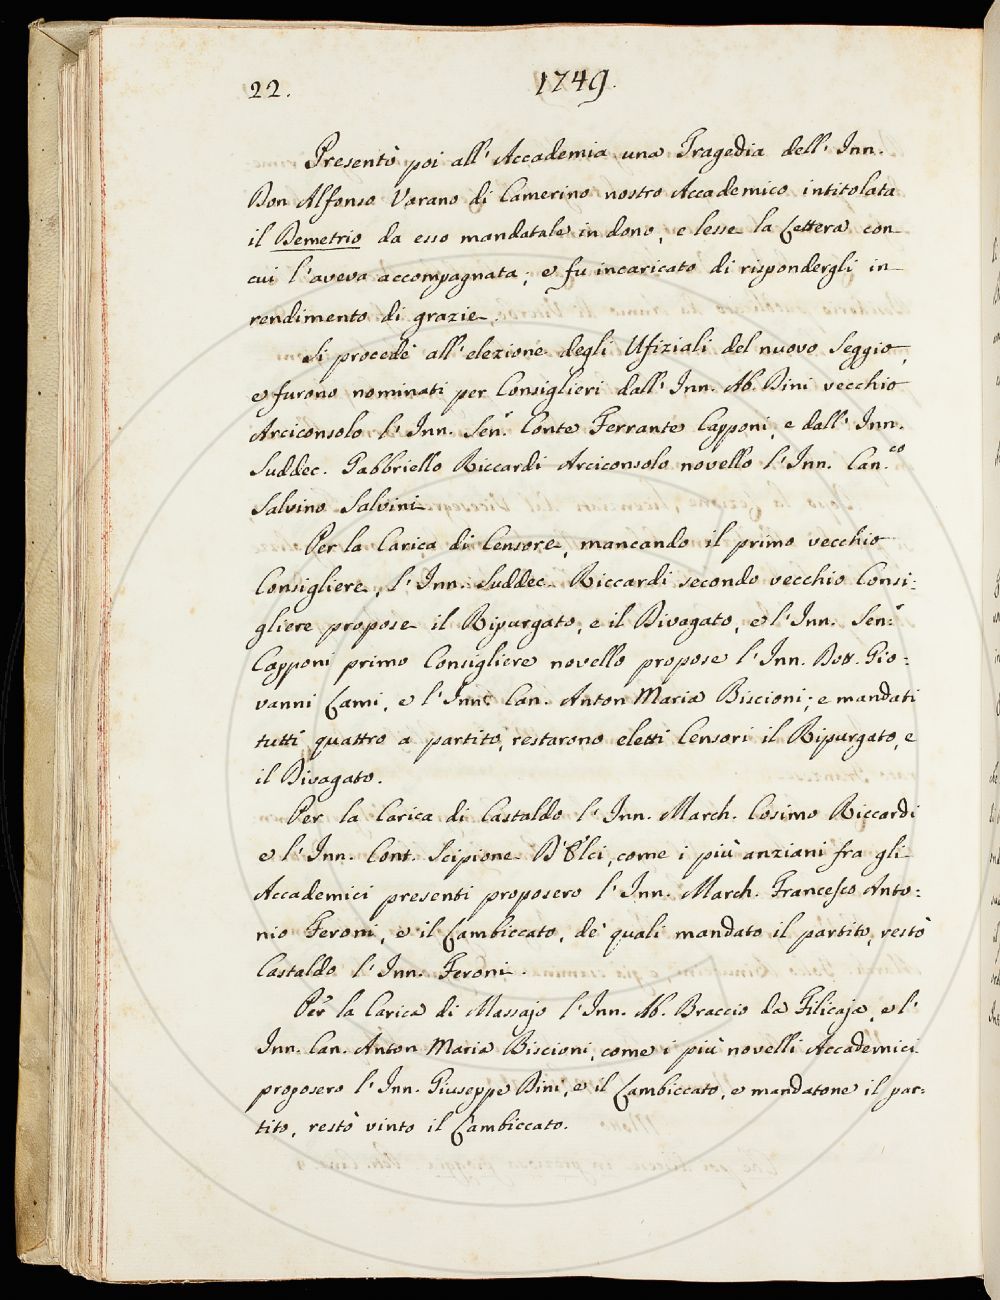 22.
1749.
Presentò poi all' Accademia una Tragedia dell' Inn.
Don Alfonso Varano di Camerino nostro Accademico intitolata
il Demetrio da esso mandatale in dono, e lesse la Lettera con
cui l'aveva accompagnata; e fu incaricato di rispondergli in
rendimento di grazie.
Si procedè all'elezione degli Ufiziali del nuovo Seggio,
e furono nominati per Consiglieri dall' Inn. Ab. Bini vecchio
Arciconsolo l' Inn. Sen. Conte Ferrante Capponi, e dall' Inn.
Suddec. Gabbriello Riccardi Arciconsolo novello l' Inn. Can.co
Salvino Salvini.
Per la Carica di Censore, mancando il primo vecchio
Consigliere, l' Inn. Suddec. Riccardi secondo vecchio Consi:
gliere propose il Ripurgato, e il Divagato, e l' Inn. Sen.
Capponi primo Consigliere novello propose l' Inn. Dott. Gio:
vanni Lami, e l' Inn. Can. Anton Maria Biscioni; e mandati
tutti quattro a partito, restarono eletti Censori il Ripurgato, e
il Divagato.
Per la Carica di Castaldo l' Inn. March. Cosimo Riccardi
e l' Inn. Cont. Scipione come i più anziani fra gli
Accademici presenti proposero l' Inn. March. Francesco Anto:
nio Feroni, e il Lambiccato, de' quali mandato il partito, restò
Castaldo l' Inn. Feroni.
Per la Carica di Massajo l' Inn. Ab. Braccio da Filicaja, e l'
Inn. Can. Anton Maria Biscioni, come i più novelli Accademici
proposero l' Inn. Giuseppe Bini, e il Lambiccato, e mandatone il par:
tito, restò vinto il Lambiccato.